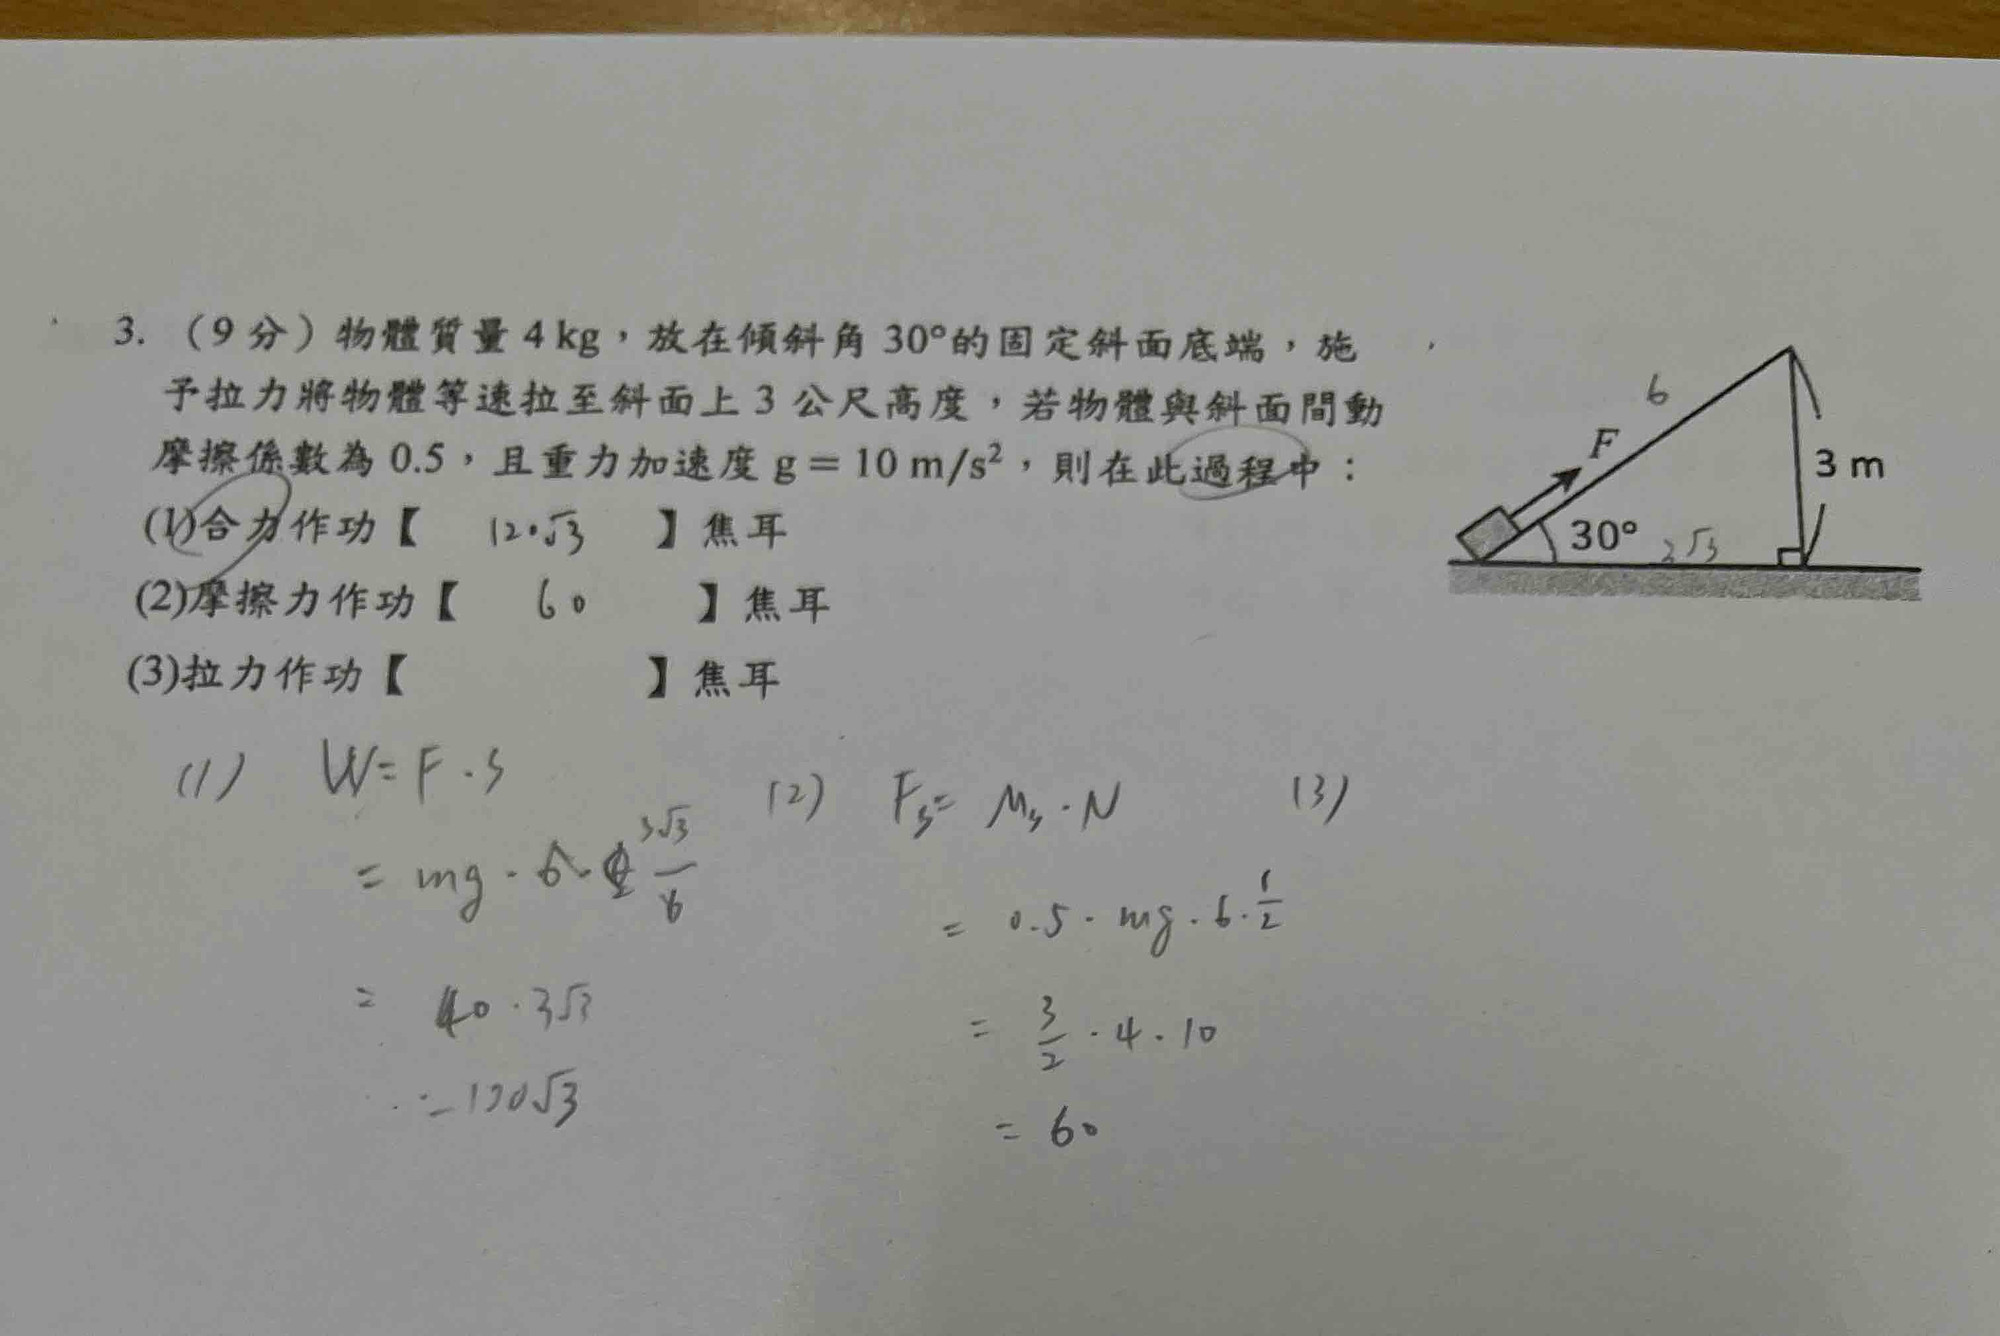 3. （9分）物體質量 4 kg，放在傾斜角 30°的固定斜面底端，施
予拉力將物體等速拉至斜面上 3 公尺高度，若物體與斜面間動
摩擦係數為 0.5，且重力加速度 g = 10 m/s²，則在此過程中：
(1)合力作功【 120√3 】焦耳
(2)摩擦力作功【 60 】焦耳
(3)拉力作功【 】焦耳
6
F
3 m
30°
(1) W = F · S
= mg · 6 · 3√3/6
= 40 · 3√3
= 120√3
(2) Fs = μs · N
= 0.5 · mg · 6 · 1/2
= 3/2 · 4 · 10
= 60
(3)